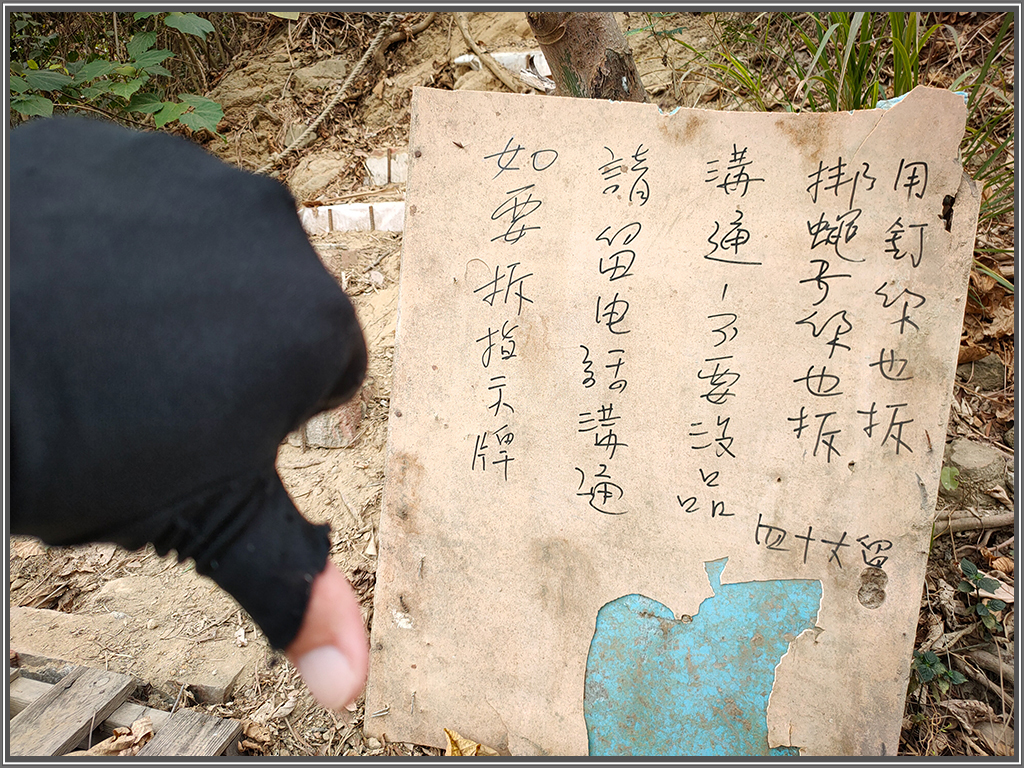 如要拆指示牌
請留电話溝通
溝通-不要沒品
挷蠅子你也拆
用釘你也拆
四十大留